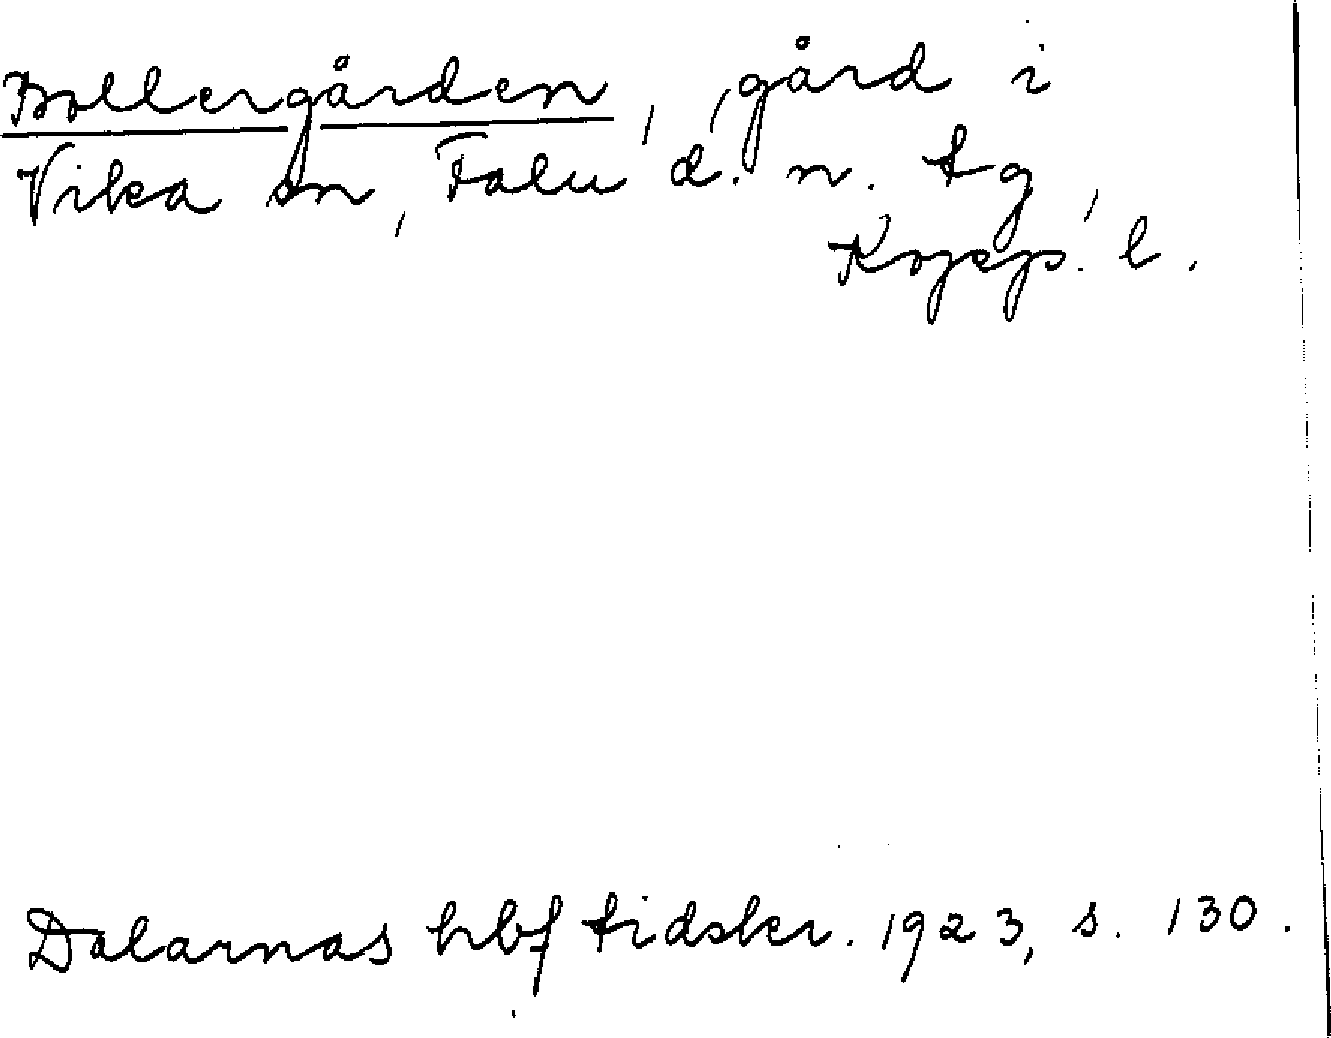 Bollergården, gård i
Vika sn, Falu d. n. tg,
Kopp. l.
Dalarnas hbf tidskr. 1923, s. 130.